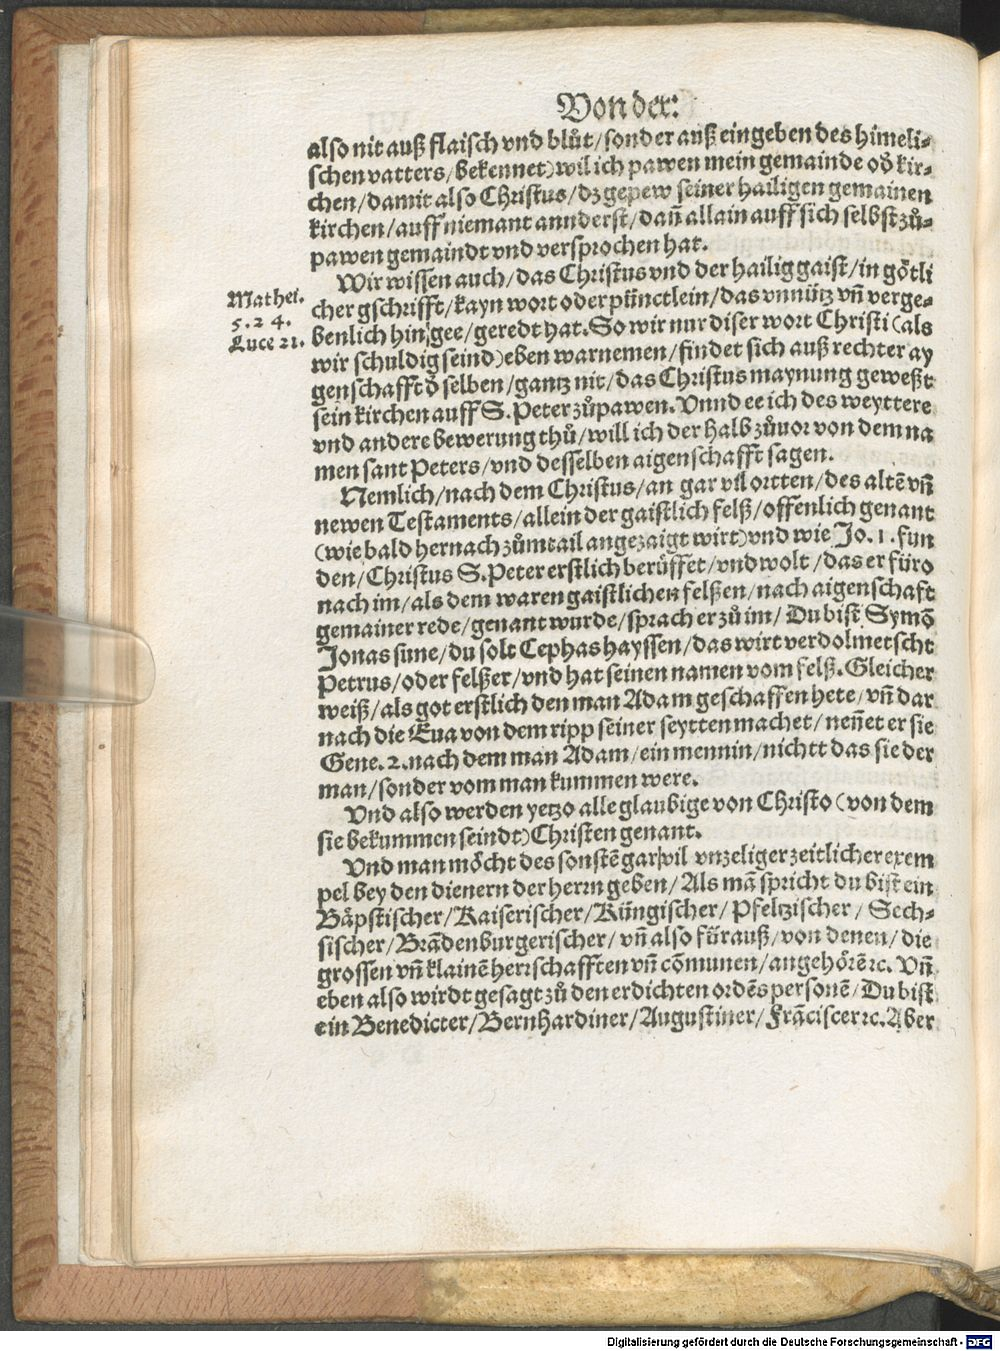 Von der:
also nit auß flaisch vnd blůt/sonder auß eingeben des himeli-
schen vatters/bekennet)wil ich pawen mein gemainde od̕ kir-
chen/damit also Christus/dz gepew seiner hailigen gemainen
kirchen/auff niemant annderst/dañ allain auff sich selbst zů-
pawen gemaindt vnd versprochen hat.
Wir wissen auch/das Christus vnd der hailig gaist/in götli
Mathei.
5. 24.
Luce 21.
cher gschrifft/kayn wort oder pünctlein/das vnnütz vñ verge-
benlich hin gee/geredt hat. So wir nur diser wort Christi (als
wir schuldig seind)eben warnemen/findet sich auß rechter ay
genschafft d̕ selben/gantz nit/das Christus maynung geweßt
sein kirchen auff S. Peter zůpawen. Vnnd ee ich des weyttere
vnd andere bewerung thů/will ich der halb zůuor von dem na
men sant Peters/vnd desselben aigenschafft sagen.
Nemlich/nach dem Christus/an gar vil ortten/des altẽ vñ
newen Testaments/allein der gaistlich felß/offenlich genant
(wie bald hernach zůmtail angezaigt wirt)vnd wie Jo. 1. fun
den/Christus S. Peter erstlich berüffet/vnd wolt/das er füro
nach im/als dem waren gaistlichen felßen/nach aigenschaft
gemainer rede/genant wurde/sprach er zů im/Du bist Symõ
Jonas sune/du solt Cephas hayssen/das wirt verdolmetscht
Petrus/oder felßer/vnd hat seinen namen vom felß. Gleicher
weiß/als got erstlich den man Adam geschaffen hete/vñ dar
nach die Eua von dem ripp seiner seytten machet/neñet er sie
Gene. 2. nach dem man Adam/ein mennin/nichtt das sie der
man/sonder vom man kummen were.
Vnd also werden yetzo alle glaubige von Christo (von dem
sie bekummen seindt)Christen genant.
Vnd man möcht des sonstẽ gar vil vnzeliger zeitlicher exem
pel bey den dienern der herrn geben/Als mã spricht du bist ein
Bäpstischer/Kaiserischer/Küngischer/Pfeltzischer/Sech-
sischer/Brãdenburgerischer/vñ also fürauß/von denen/die
grossen vñ klainẽ herrschafften vñ cõmunen/angehörẽ ꝛc. Vñ
eben also wirdt gesagt zů den erdichten ordẽs personẽ/Du bist
ein Benedicter/Bernhardiner/Augustiner/Frãciscer ꝛc. Aber
Digitalisierung gefördert durch die Deutsche Forschungsgemeinschaft - DFG